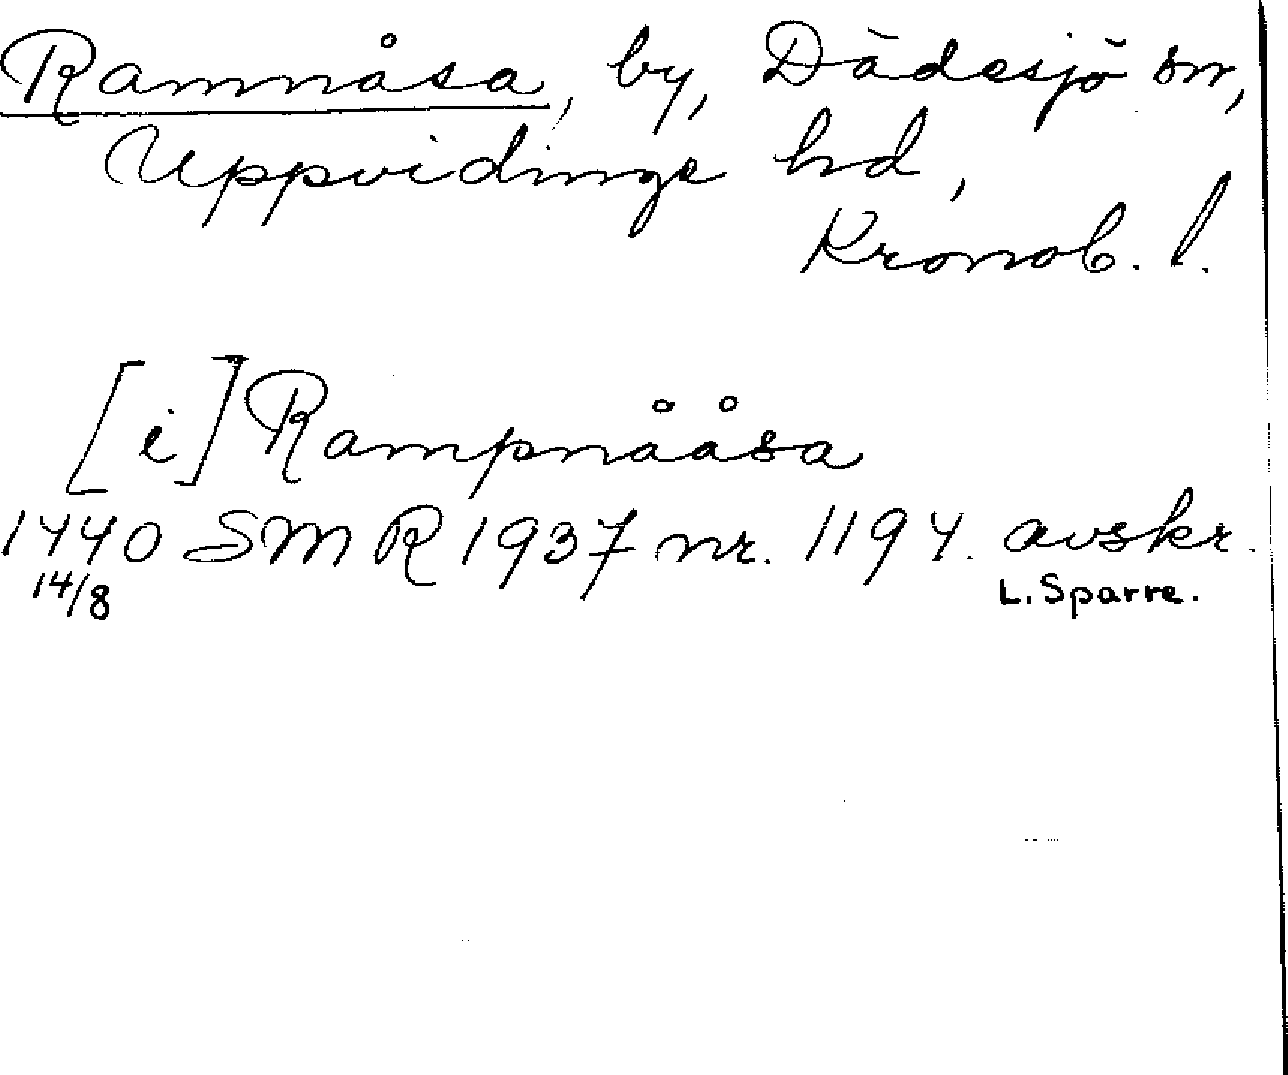 Ramnåsa, by, Dädesjö sn,
Uppvidinge hd,
Kronob. l.
[i] Rampnååsa
1440 SMR 1937 nr. 1194. avskr.
14/8 L. Sparre.